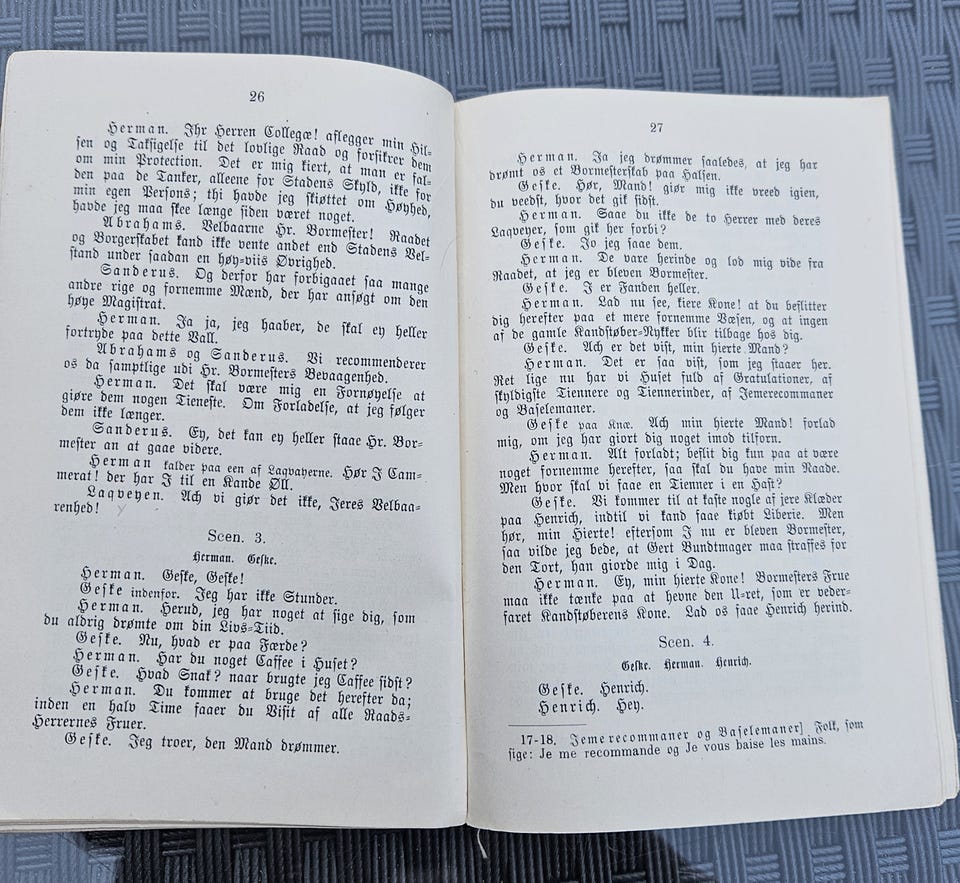 26
Herman. Ihr Herren Collegæ! aflegger min Hil-
sen og Taksigelse til det lovlige Raad og forsikrer dem
om min Protection. Det er mig kiert, at man er fal-
den paa de Tanker, alleene for Stadens Skyld, ikke for
min egen Persons; thi havde jeg skiøttet om Høyhed,
havde jeg maa skee længe siden været noget.
Abrahams. Velbaarne Hr. Bormester! Raadet
og Borgerskabet kand ikke vente andet end Stadens Vel-
stand under saadan en høy-viis Øvrighed.
Sanderus. Og derfor har forbigaaet saa mange
andre rige og fornemme Mænd, der har ansøgt om den
høye Magistrat.
Herman. Ja ja, jeg haaber, de skal ey heller
fortryde paa dette Vall.
Abrahams og Sanderus. Vi recommenderer
os da samptlige udi Hr. Bormesters Bevaagenhed.
Herman. Det skal være mig en Fornøyelse at
giøre dem nogen Tieneste. Om Forladelse, at jeg følger
dem ikke længer.
Sanderus. Ey, det kan ey heller staae Hr. Bor-
mester an at gaae videre.
Herman kalder paa een af Laqvayerne. Hør I Cam-
merat! der har I til en Kande Øll.
Laqveyen. Ach vi giør det ikke, Jeres Velbaa-
renhed!
Scen. 3.
Herman. Geske.
Herman. Geske, Geske!
Geske indenfor. Jeg har ikke Stunder.
Herman. Herud, jeg har noget at sige dig, som
du aldrig drømte om din Livs-Tiid.
Geske. Nu, hvad er paa Færde?
Herman. Har du noget Caffee i Huset?
Geske. Hvad Snak? naar brugte jeg Caffee sidst?
Herman. Du kommer at bruge det herefter da;
inden en halv Time faaer du Visit af alle Raads-
Herrernes Fruer.
Geske. Jeg troer, den Mand drømmer.
27
Herman. Ja jeg drømmer saaledes, at jeg har
drømt os et Bormesterskab paa Halsen.
Geske. Hør, Mand! giør mig ikke vreed igien,
du veedst, hvor det gik sidst.
Herman. Saae du ikke de to Herrer med deres
Laqveyer, som gik her forbi?
Geske. Jo jeg saae dem.
Herman. De vare herinde og lod mig vide fra
Raadet, at jeg er bleven Bormester.
Geske. I er Fanden heller.
Herman. Lad nu see, kiere Kone! at du beflitter
dig herefter paa et mere fornemme Væsen, og at ingen
af de gamle Kandstøber-Nykker blir tilbage hos dig.
Geske. Ach er det vist, min hierte Mand?
Herman. Det er saa vist, som jeg staaer her.
Ret lige nu har vi Huset fuld af Gratulationer, af
skyldigste Tiennere og Tiennerinder, af Jemerecommaner
og Baselemaner.
Geske paa Knæ. Ach min hierte Mand! forlad
mig, om jeg har giort dig noget imod tilforn.
Herman. Alt forladt; beflit dig kun paa at være
noget fornemme herefter, saa skal du have min Naade.
Men hvor skal vi faae en Tienner i en Hast?
Geske. Vi kommer til at kaste nogle af jere Klæder
paa Henrich, indtil vi kand faae kiøbt Liberie. Men
hør, min Hierte! eftersom I nu er bleven Bormester,
saa vilde jeg bede, at Gert Bundtmager maa straffes for
den Tort, han giorde mig i Dag.
Herman. Ey, min hierte Kone! Bormesters Frue
maa ikke tænke paa at hevne den U-ret, som er veder-
faret Kandstøberens Kone. Lad os faae Henrich herind.
Scen. 4.
Geske. Herman. Henrich.
Geske. Henrich.
Henrich. Hey.
17-18. Jemerecommaner og Baselemaner] Folk, som
sige: Je me recommande og Je vous baise les mains.